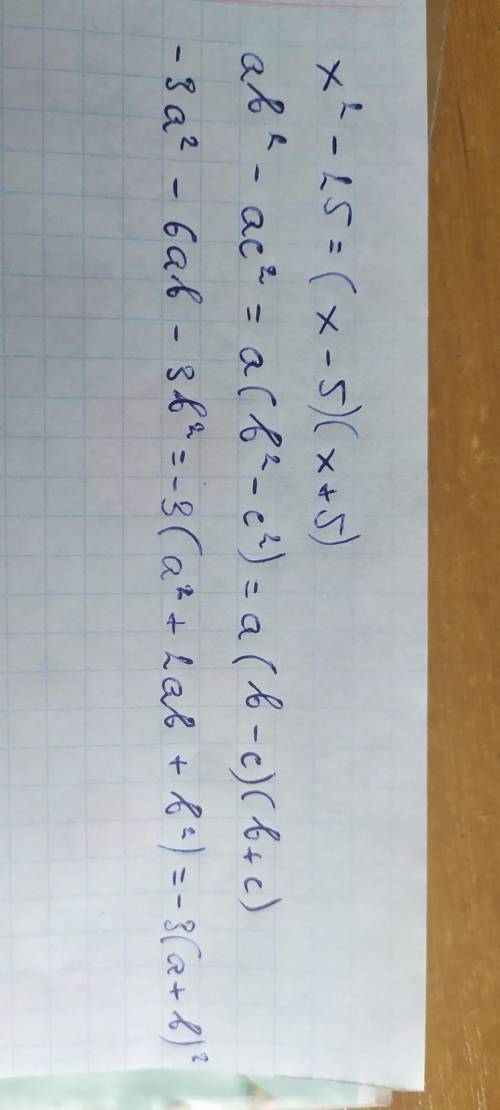 x² - 25 = (x - 5)(x + 5)
ab² - ac² = a(b² - c²) = a(b - c)(b + c)
-3a² - 6ab - 3b² = -3(a² + 2ab + b²) = -3(a + b)²